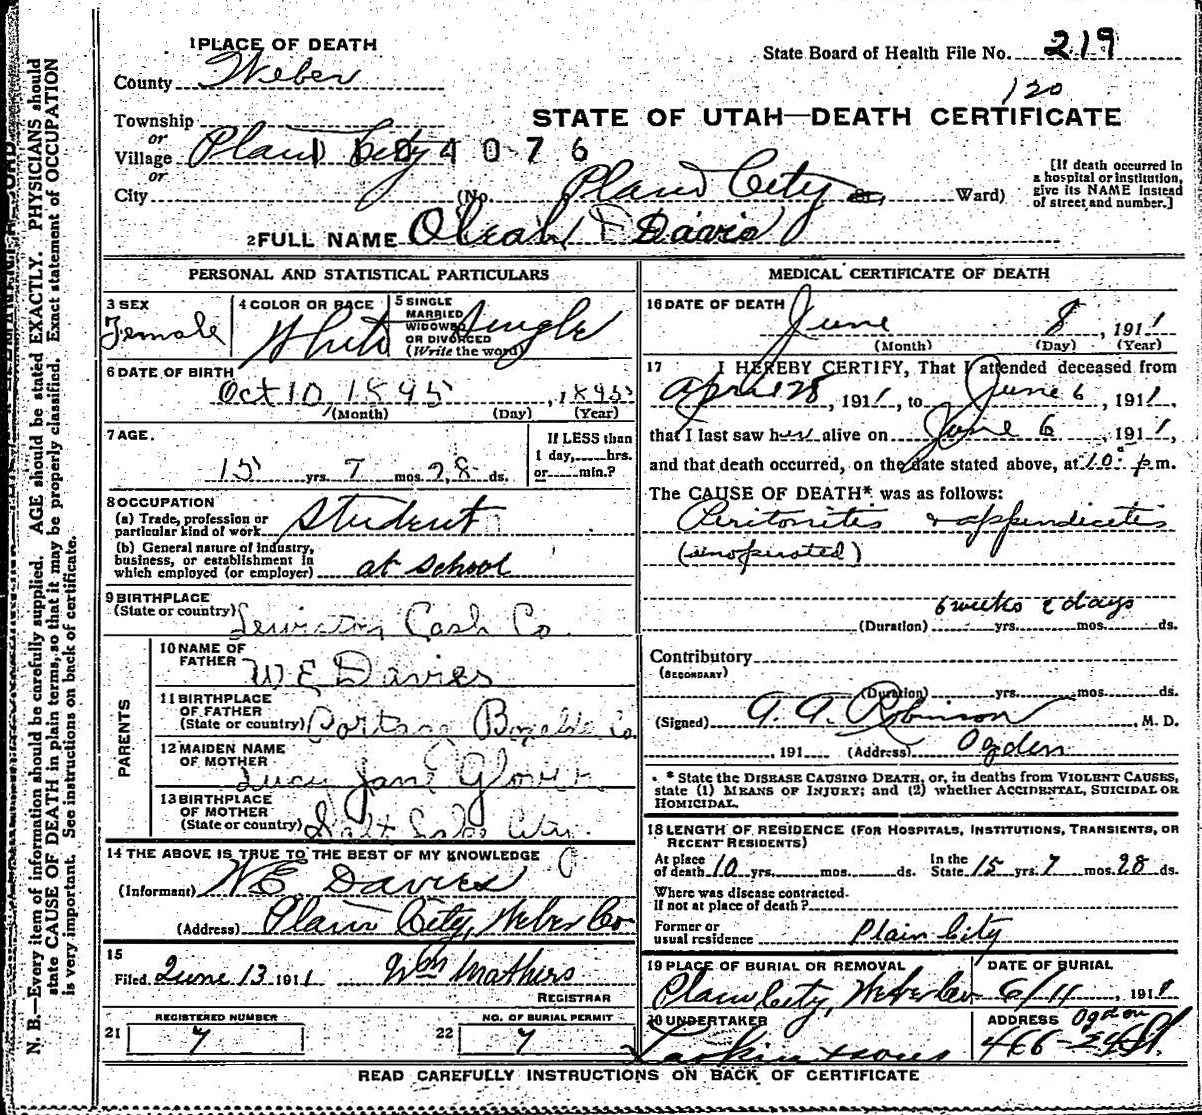 1 PLACE OF DEATH
County Weber
State Board of Health File No. 219
120
STATE OF UTAH—DEATH CERTIFICATE
Township
or
Village Plain City
1104076
or
City (No. Plain City St., Ward)
[If death occurred in
a hospital or institution,
give its NAME instead
of street and number.]
2 FULL NAME Oleah Davis
PERSONAL AND STATISTICAL PARTICULARS
3 SEX Female
4 COLOR OR RACE White
5 SINGLE
MARRIED
WIDOWED
OR DIVORCED
(Write the word) Single
6 DATE OF BIRTH
Oct 10 1895, 1895
(Month) (Day) (Year)
7 AGE.
15 yrs. 7 mos. 28 ds.
If LESS than
1 day, hrs.
or min.?
8 OCCUPATION
(a) Trade, profession or
particular kind of work Student
(b) General nature of industry,
business, or establishment in
which employed (or employer) at school
9 BIRTHPLACE
(State or country) Lewiston Cash Co.
PARENTS
10 NAME OF
FATHER W E Davies
11 BIRTHPLACE
OF FATHER
(State or country) Portage Co.
12 MAIDEN NAME
OF MOTHER Lucy Jane Glover
13 BIRTHPLACE
OF MOTHER
(State or country) Salt Lake City.
14 THE ABOVE IS TRUE TO THE BEST OF MY KNOWLEDGE
(Informant) W E Davies
(Address) Plain City, Weber Co
15
Filed June 13 1911 Wm Mathers
REGISTRAR
21 REGISTERED NUMBER 7
22 NO. OF BURIAL PERMIT 7
MEDICAL CERTIFICATE OF DEATH
16 DATE OF DEATH
June 8, 1911
(Month) (Day) (Year)
17 I HEREBY CERTIFY, That I attended deceased from
April 28, 1911, to June 6, 1911,
that I last saw her alive on June 6, 1911,
and that death occurred, on the date stated above, at 10 p m.
The CAUSE OF DEATH* was as follows:
Peritonitis & appendicetis
(unoperated)
6 weeks 2 days
(Duration) yrs. mos. ds.
Contributory
(SECONDARY)
(Duration) yrs. mos. ds.
(Signed) G. A. Robinson, M. D.
191 (Address) Ogden
* State the DISEASE CAUSING DEATH, or, in deaths from VIOLENT CAUSES,
state (1) MEANS OF INJURY; and (2) whether ACCIDENTAL, SUICIDAL OR
HOMICIDAL.
18 LENGTH OF RESIDENCE (FOR HOSPITALS, INSTITUTIONS, TRANSIENTS, OR
RECENT RESIDENTS)
At place
of death 10 yrs. mos. ds.
In the
State 15 yrs. 7 mos. 28 ds.
Where was disease contracted.
If not at place of death?
Former or
usual residence Plain City
19 PLACE OF BURIAL OR REMOVAL
Plain City, Weber Co
DATE OF BURIAL
6/11, 1911
20 UNDERTAKER
Larkin & sons
ADDRESS Ogden
466-24 St.
READ CAREFULLY INSTRUCTIONS ON BACK OF CERTIFICATE
N. B.—Every item of information should be carefully supplied. AGE should be stated EXACTLY. PHYSICIANS should
state CAUSE OF DEATH in plain terms, so that it may be properly classified. Exact statement of OCCUPATION
is very important. See instructions on back of certificate.